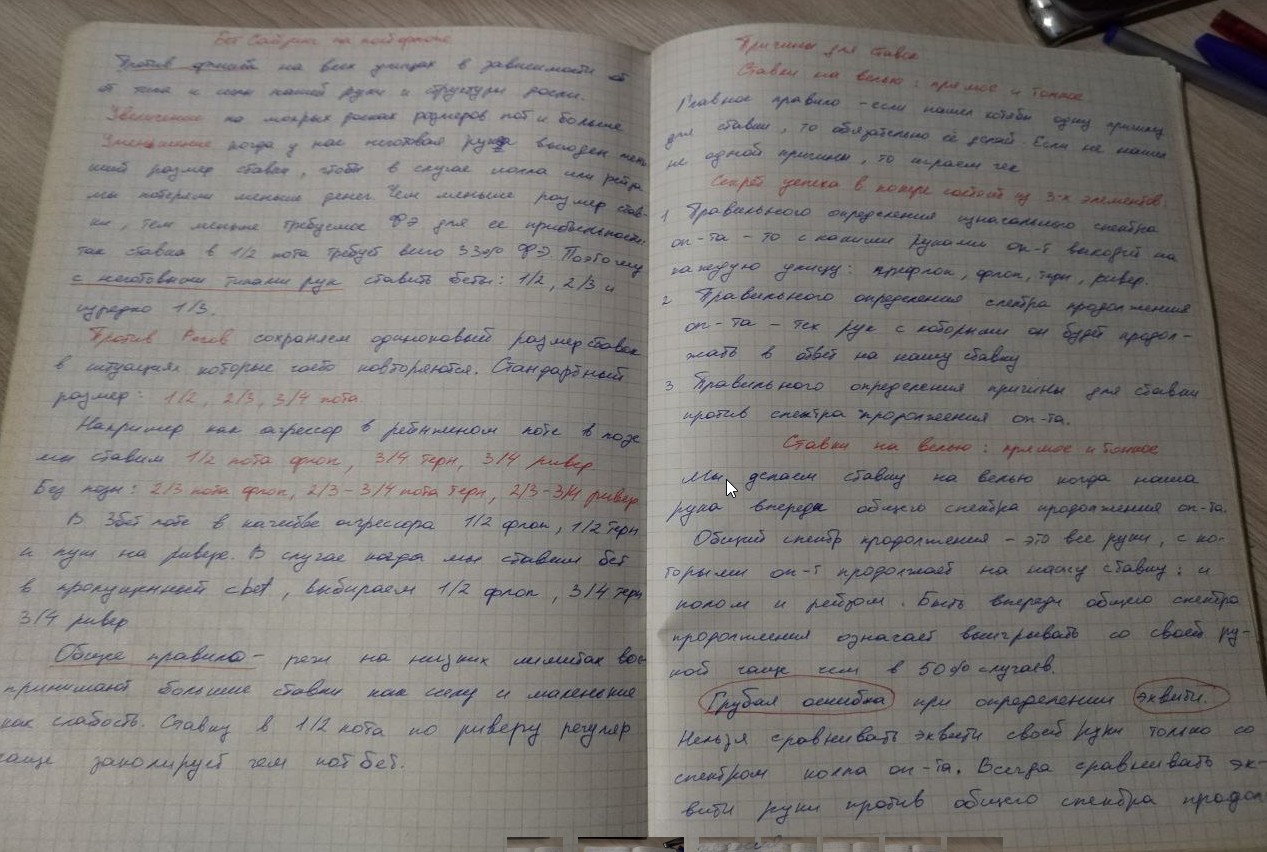 Бет сайзинг на постфлопе
Против фишей на всех улицах в зависимости от
от типа и силы нашей руки и структуры доски.
Увеличение на мокрых досках размеров пот и больше
Уменьшение когда у нас неготовая рука выгоден мень
ший размер ставки, чтобы в случае колла или рейза
мы потеряли меньше денег. Чем меньше размер став-
ки, тем меньше требуемое ФЭ для её прибыльности:
так ставка в 1/2 пота требует всего 33% ФЭ. Поэтому
с неготовыми типами рук ставить беты: 1/2, 2/3 и
изредко 1/3.
Против Регов сохраняем одинаковый размер ставок
в ситуациях которые часто повторяются. Стандартный
размер: 1/2, 2/3, 3/4 пота.
Например как агрессор в рейзеном поте в позе
мы ставим 1/2 пота флоп, 3/4 терн, 3/4 ривер
Без позы: 2/3 пота флоп, 2/3-3/4 пота терн, 2/3-3/4 ривер
В 3бет поте в качестве агрессора 1/2 флоп, 1/2 терн
и пуш на ривере. В случае когда мы ставим бет
в пропущенный cbet, выбираем 1/2 флоп, 3/4 терн
3/4 ривер
Общее правило - реги на низких лимитах вос
принимают большие ставки как силу и маленькие
как слабость. Ставку в 1/2 пота по риверу регуляр
чаще заколирует чем пот бет.
Причины для ставок
Ставки на велью: прямое и тонкое
Главное правило - если нашел хотябы одну причину
для ставки, то обязательно её делай. Если не нашел
не одной причины, то играем чек
Секрет успеха в покере состоит из 3-х элементов.
1 Правильного определения изначального спектра
оп-та - то с какими руками оп-т выходит на
каждую улицу: префлоп, флоп, терн, ривер.
2 Правильного определения спектра продолжения
оп-та - тех рук с которыми он будет продол-
жать в ответ на нашу ставку
3 Правильного определения причины для ставки
против спектра продолжения оп-та.
Ставки на велью: прямое и тонкое
Мы делаем ставку на велью когда наша
рука впереди общего спектра продолжения оп-та.
Общий спектр продолжения - это все руки, с ко-
торыми оп-т продолжает на нашу ставку: и
колом и рейзом. Быть впереди общего спектра
продолжения означает выигрывать со своей ру-
кой чаще чем в 50% случаев.
Грубая ошибка при определении эквити.
Нельзя сравнивать эквити своей руки только со
спектром колла оп-та. Всегда сравнивать эк-
вити руки против общего спектра продол